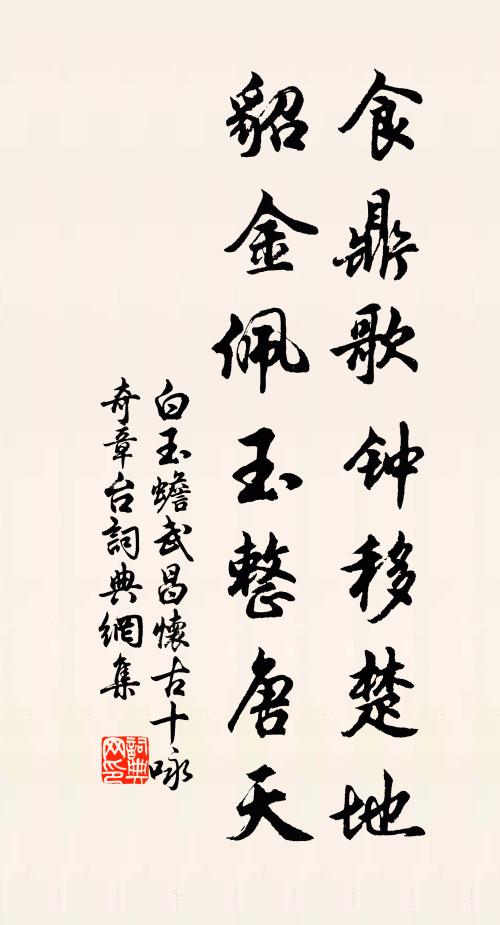 食鼎歌钟移楚地
貂金佩玉整唐天
白玉蟾武昌懷古十咏
奇章台詞典網集
詞典
网印